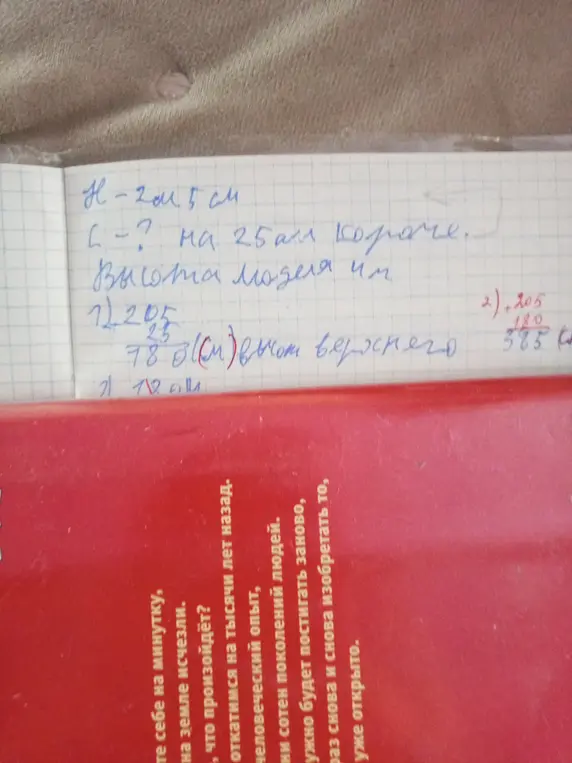 Н - 2м 5 см
С - ? на 25 см короче.
Высота модели 4 м
1) 205
25
180 (см) высот верхнего
2) + 205
180
385 (с
2) 12 см
те себе на минутку,
на земле исчезли.
, что произойдёт?
откатимся на тысячи лет назад.
человеческий опыт,
ии сотен поколений людей.
ужно будет постигать заново,
раз снова и снова изобретать то,
уже открыто.